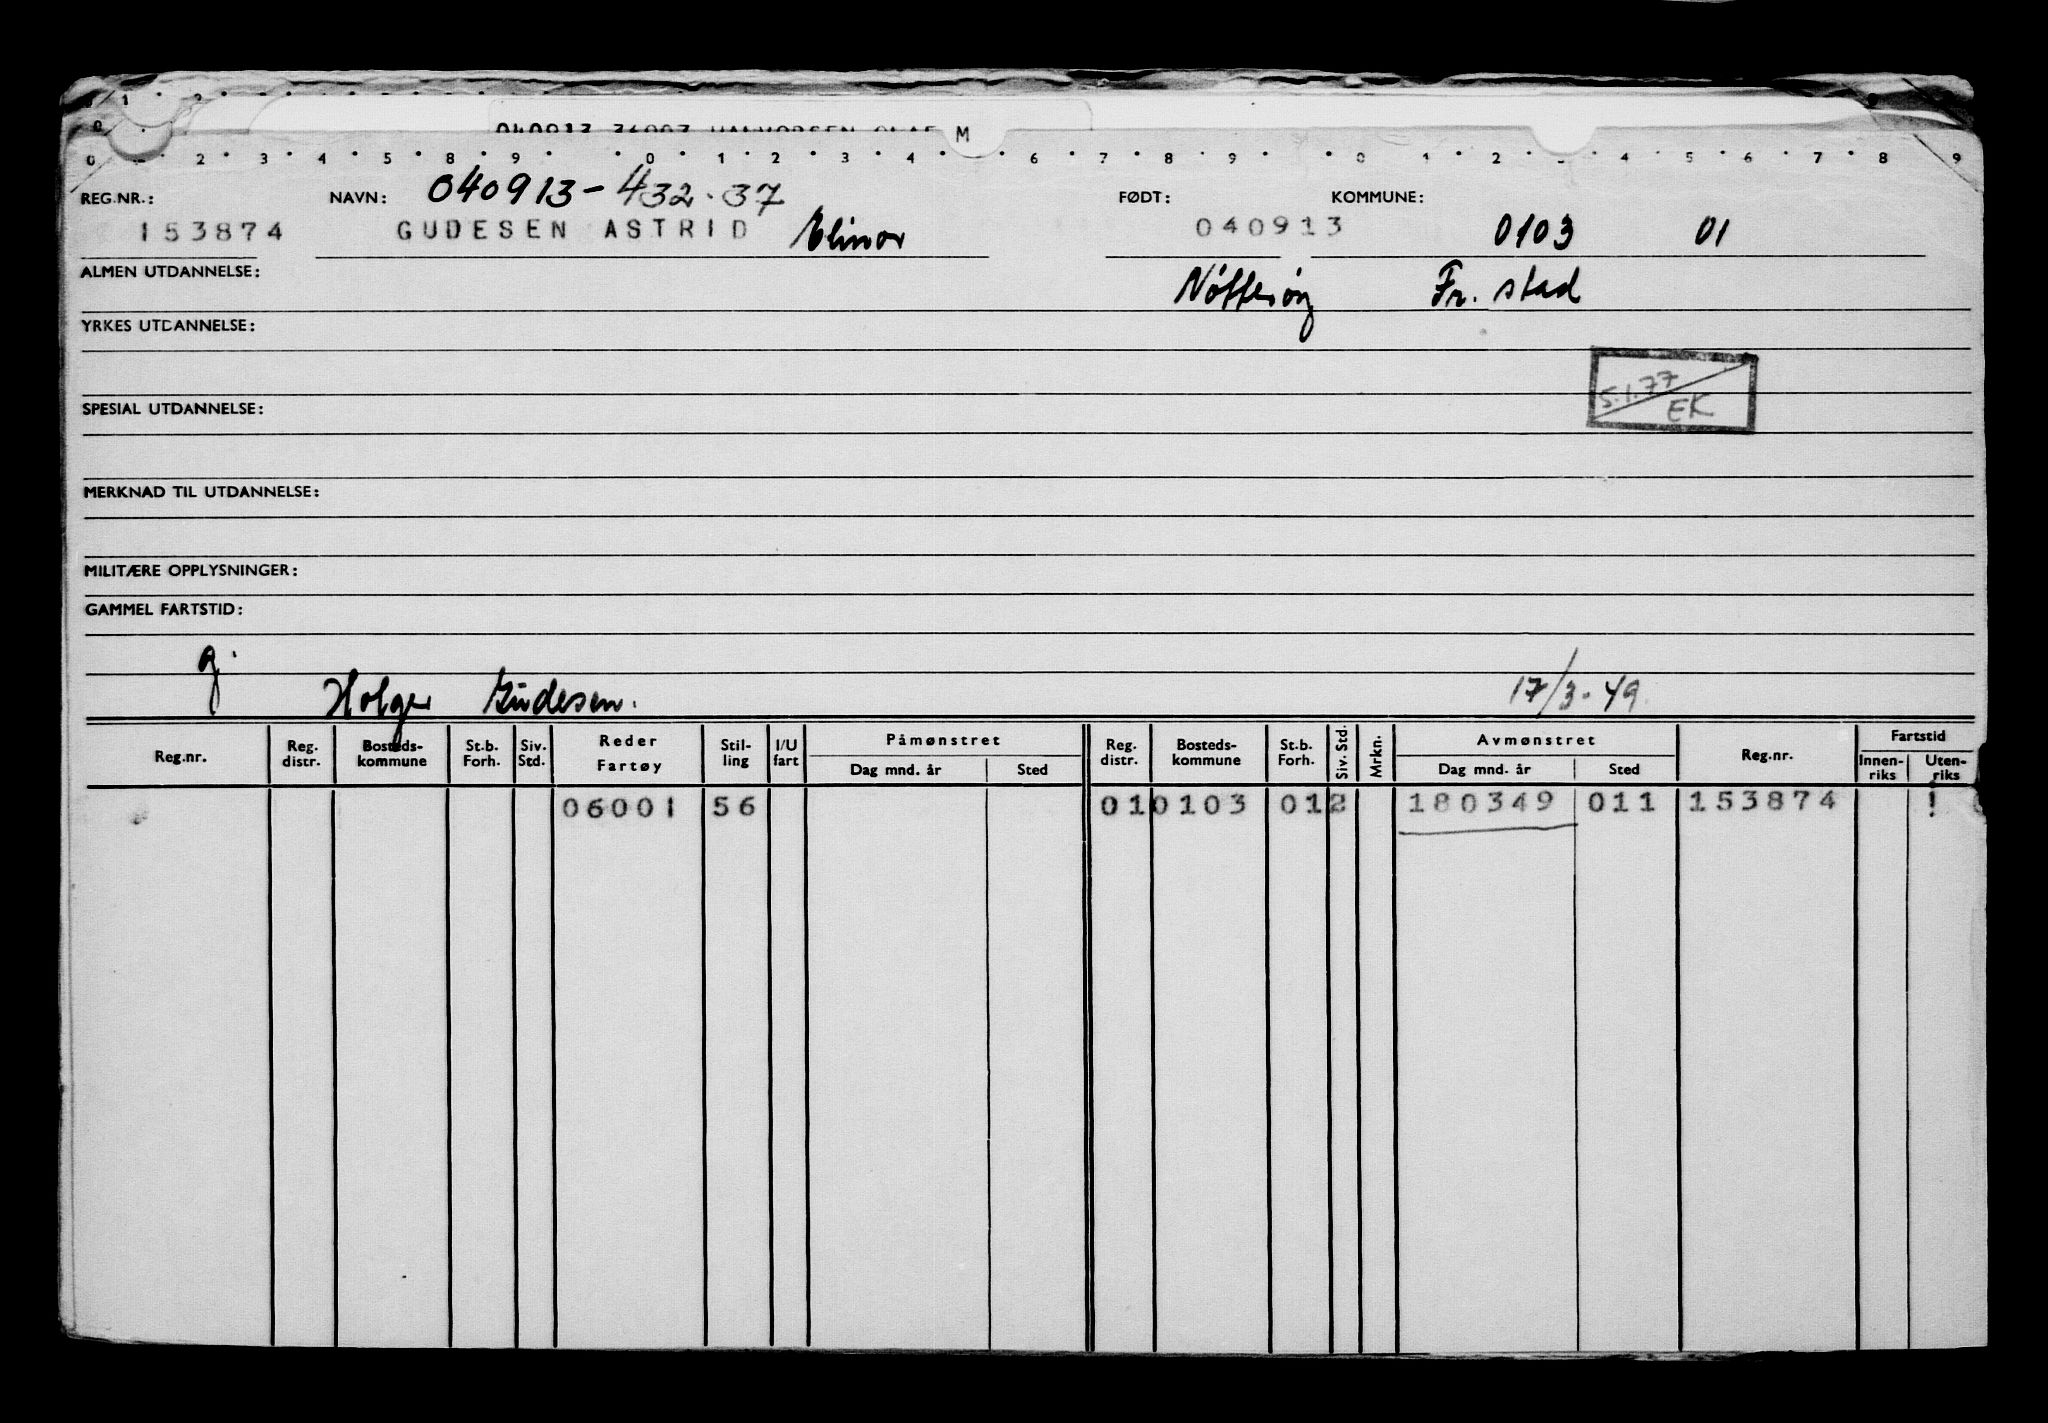 M
0 2 3 4 5 8 9 0 1 2 3 4 6 7 8 9 0 1 2 4 5 6 7 8 9
040913-432.37
REG.NR.: NAVN: FØDT: KOMMUNE:
153874 GUDESEN ASTRID Elinor 040913 0103 01
ALMEN UTDANNELSE: Nøtterøy Fr. stad
YRKES UTDANNELSE:
5.1.77
EK
SPESIAL UTDANNELSE:
MERKNAD TIL UTDANNELSE:
MILITÆRE OPPLYSNINGER:
GAMMEL FARTSTID:
g.
Holger Gudesen. 17/3.49.
Reg.nr. Reg. distr. Bosteds-kommune St.b. Forh. Siv. Std. Reder Fartøy Stil-ling I/U fart Påmønstret Dag mnd. år Sted Reg. distr. Bosteds-kommune St.b. Forh. Siv. Std. Mrkn. Avmønstret Dag mnd. år Sted Reg.nr. Fartstid Innen-riks Uten-riks
06001 56 01 0103 01 2 180349 011 153874